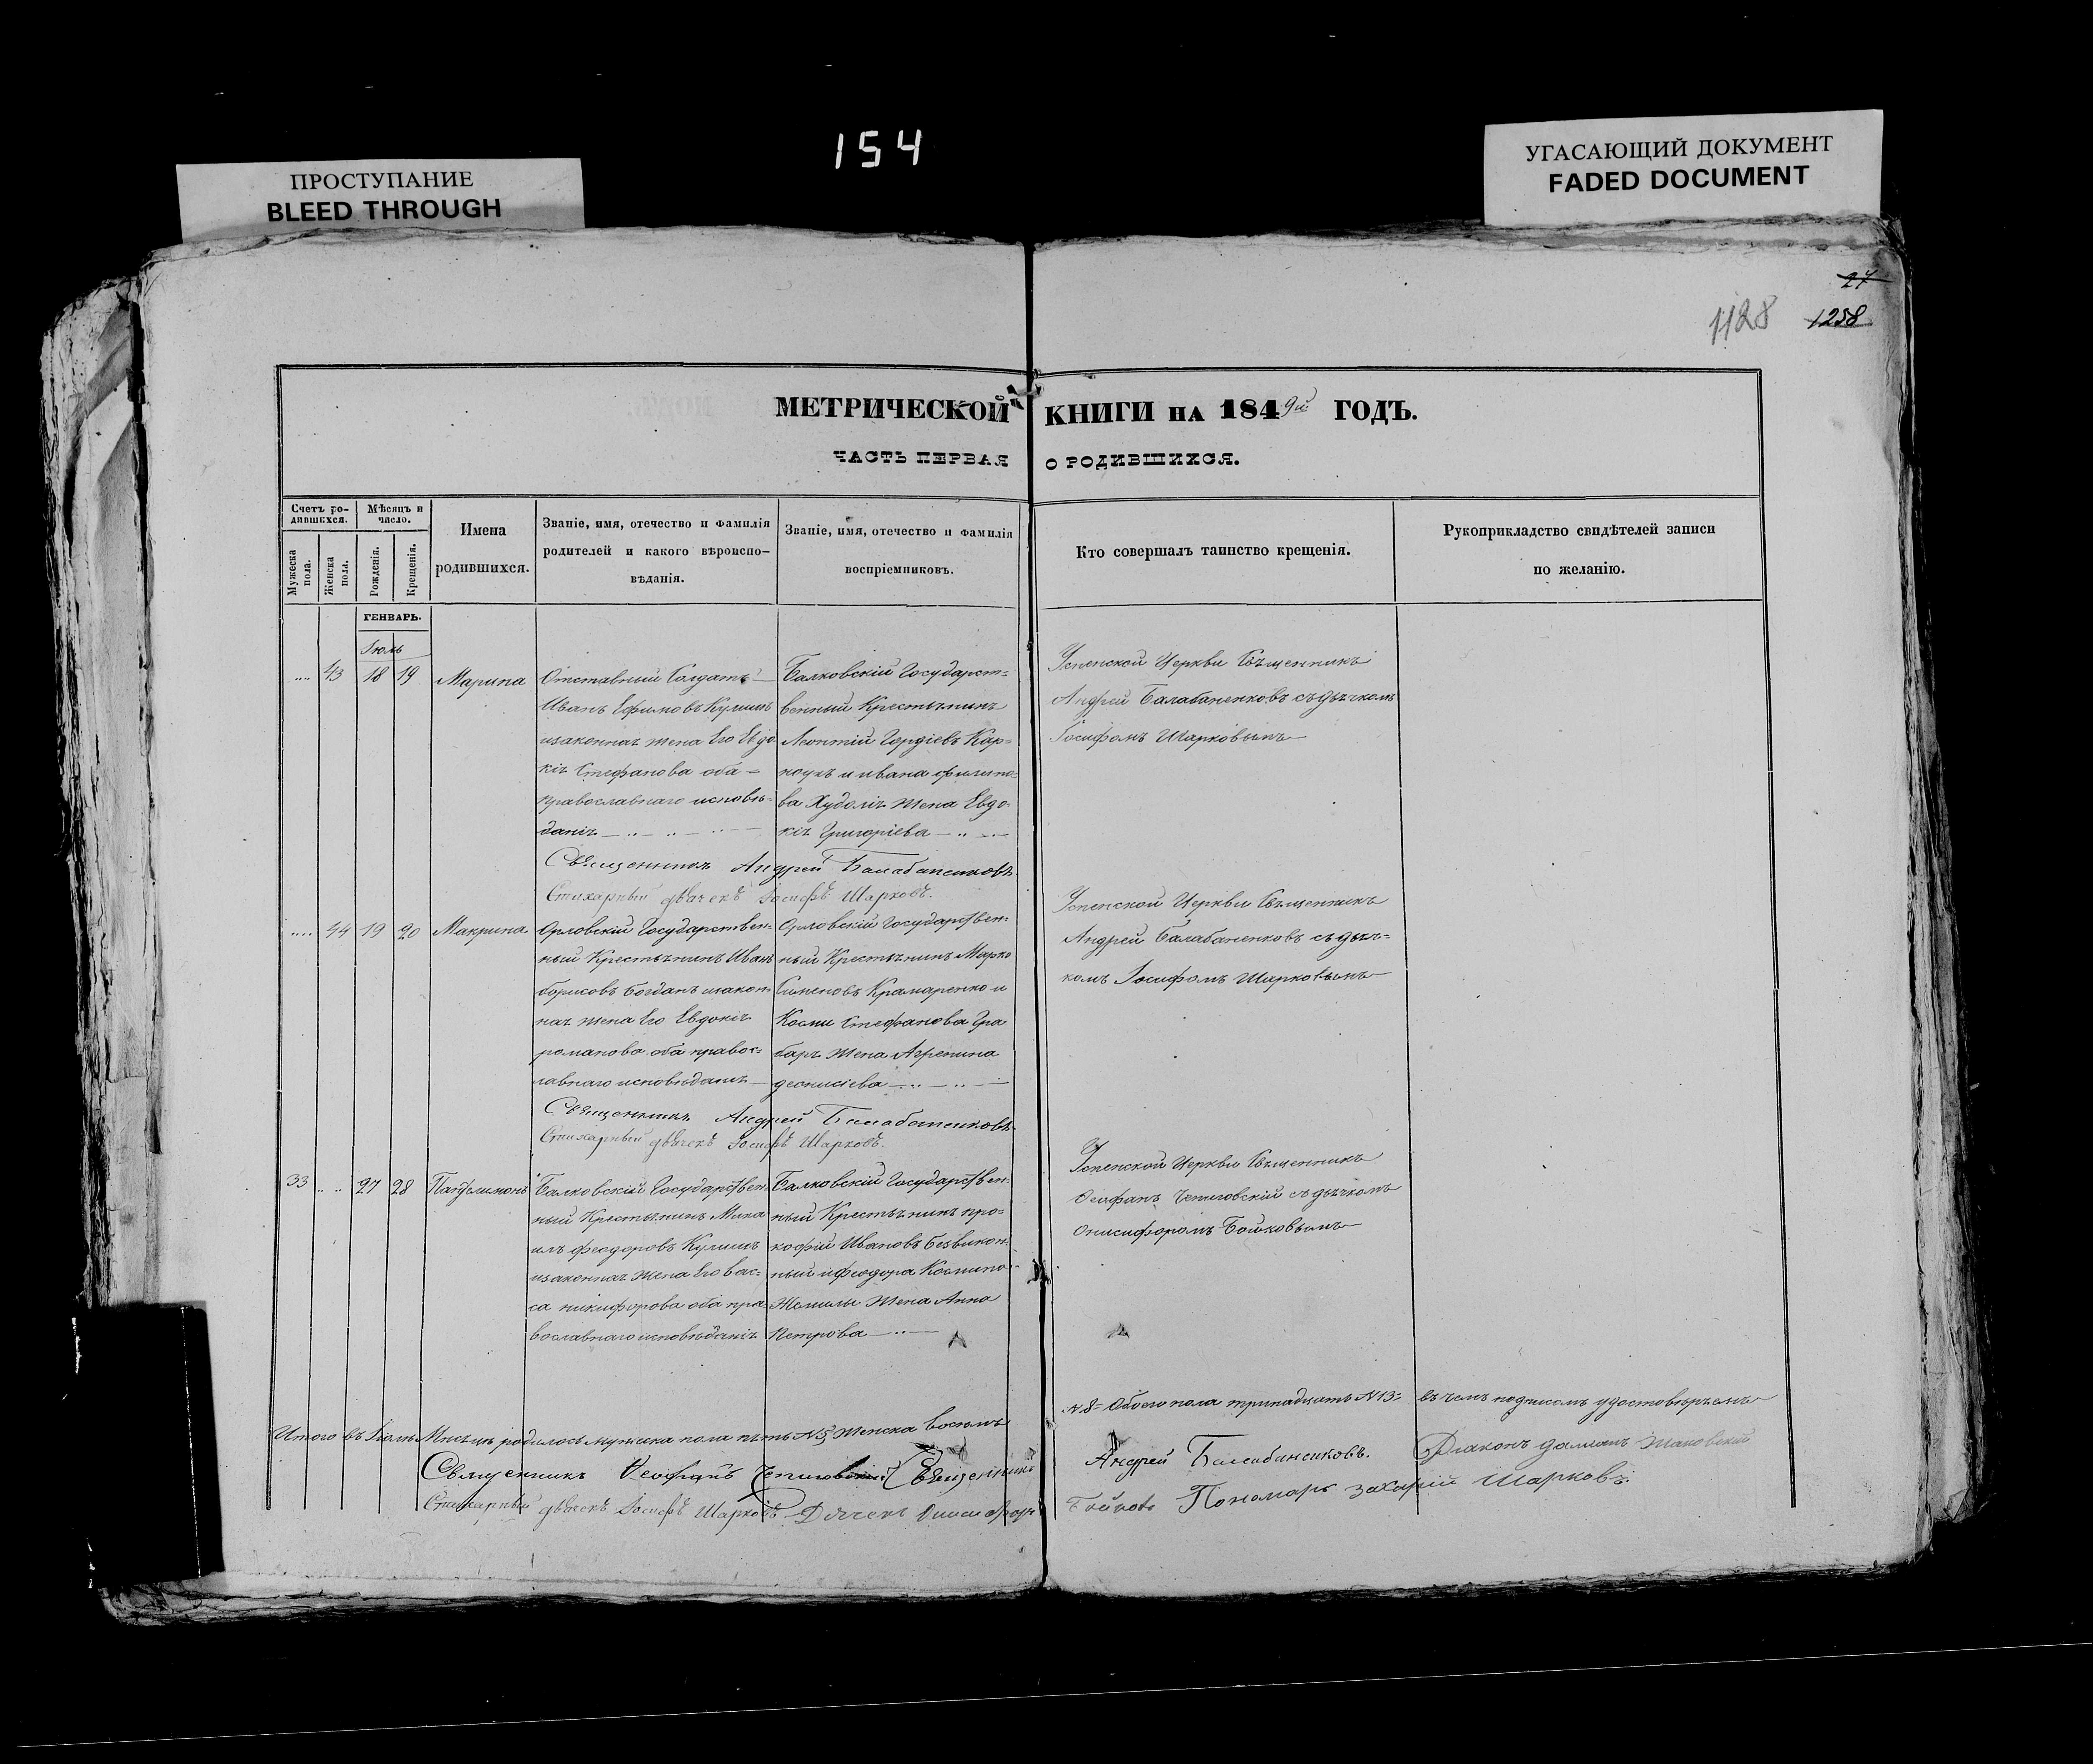 154
ПРОСТУПАНИЕ
BLEED THROUGH
УГАСАЮЩИЙ ДОКУМЕНТ
FADED DOCUMENT
27
1128 1258
МЕТРИЧЕСКОЙ КНИГИ на 1849й ГОДЪ.
ЧАСТЬ ПЕРВАЯ О РОДИВШИХСЯ.
Счетъ ро-
дившихся.
Мужеска пола.
Женска пола.
Мѣсяцъ и
число.
Рожденія.
Крещенія.
Имена
родившихся.
Званіе, имя, отечество и фамилія
родителей и какого вѣроиспо-
вѣданія.
Званіе, имя, отечество и фамилія
воспріемниковъ.
Кто совершалъ таинство крещенія.
Рукоприкладство свидѣтелей записи
по желанію.
ГЕНВАРЬ.
Іюль
43 18 19 Марина
Отставный Солдатъ
Иванъ Ефимовъ Кулишъ
изаконная жена Его Евдо
кія Стефанова оба
православнаго исповѣ-
данія
Балковскій Государст-
венный Крестьянинъ
Леонтій Гордіевъ Кар-
наухъ и ивана филипо-
ва Худолія жена Евдо-
кія Григоріева
Успенской Церкви Священникъ
Андрей Балабаненковъ съ дьячкомъ
Іосифомъ Шарковымъ
Священникъ Андрей Балабаненковъ
Стихарный дьячекъ Іосифъ Шарковъ.
44 19 20 Макрина
Орловскій Государствен-
ный Крестьянинъ Иванъ
борисовъ Богданъ изакон-
ная жена Его Евдокія
романова оба правос-
лавнаго исповѣданія
Орловскій Государствен-
ный Крестьянинъ Марко
Сименовъ Крамаренко и
Космы Стефанова Гра
баря жена Агрепина
денисіева
Успенской Церкви Священникъ
Андрей Балабаненковъ съ дьяч-
комъ Іосифомъ Шарковымъ
Священникъ Андрей Балабаненковъ
Стихарный дьячекъ Іосифъ Шарковъ.
33 27 28 Пантелимонъ
Балковскій Государствен-
ный Крестьянинъ Миха
илъ феодоровъ Кулишъ
изаконная жена Его вас-
са никифорова оба пра-
вославнаго исповѣданія
Балковскій Государствен-
ный Крестьянинъ про-
кофій Ивановъ Безвикон-
ный ифеодора Космина
Жемилы жена Анна
Петрова
Успенской Церкви Священникъ
Феофанъ Чепиговскій съ дьячкомъ
Онисифоромъ Бойковымъ
Итого въ Іюлѣ Мѣсяцѣ родилось мужеска пола пять N5, Женска восемь N8 Обоего пола тринадцать N13 въ чемъ подписомъ удостовѣряемъ
Священникъ Феофанъ Чепиговскій Священникъ Андрей Балабаненковъ. Діаконъ
Стихарный дьячекъ Іосифъ Шарковъ Дячекъ Онисифоръ Бойковъ Пономарь Захарій Шарковъ.